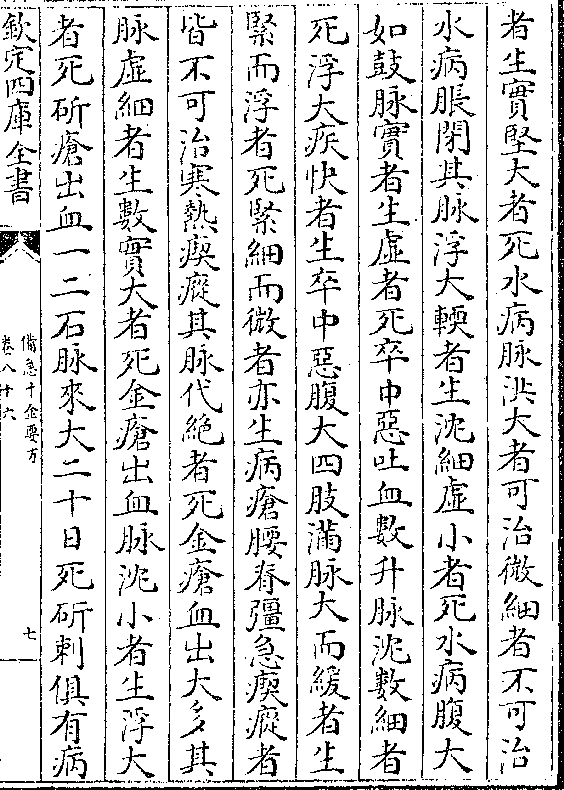 者生實堅大者死水病脉洪大者可治微細者不可治
水病脹閉其脉浮大輭者生沈細虛小者死水病腹大
如鼓脉實者生虛者死卒中惡吐血數升脉沈數細者
死浮大疾快者生卒中惡腹大四肢滿脉大而緩者生
緊而浮者死緊細而微者亦生病瘡腰脊彊急瘈瘲者
皆不可治寒熱瘈瘲其脉代絶者死金瘡血出大多其
脉虛細者生數實大者死金瘡出血脉沈小者生浮大
者死斫瘡出血一二石脉來大二十日死斫刺俱有病
欽定四庫全書
備急千金要方
卷八十六
七